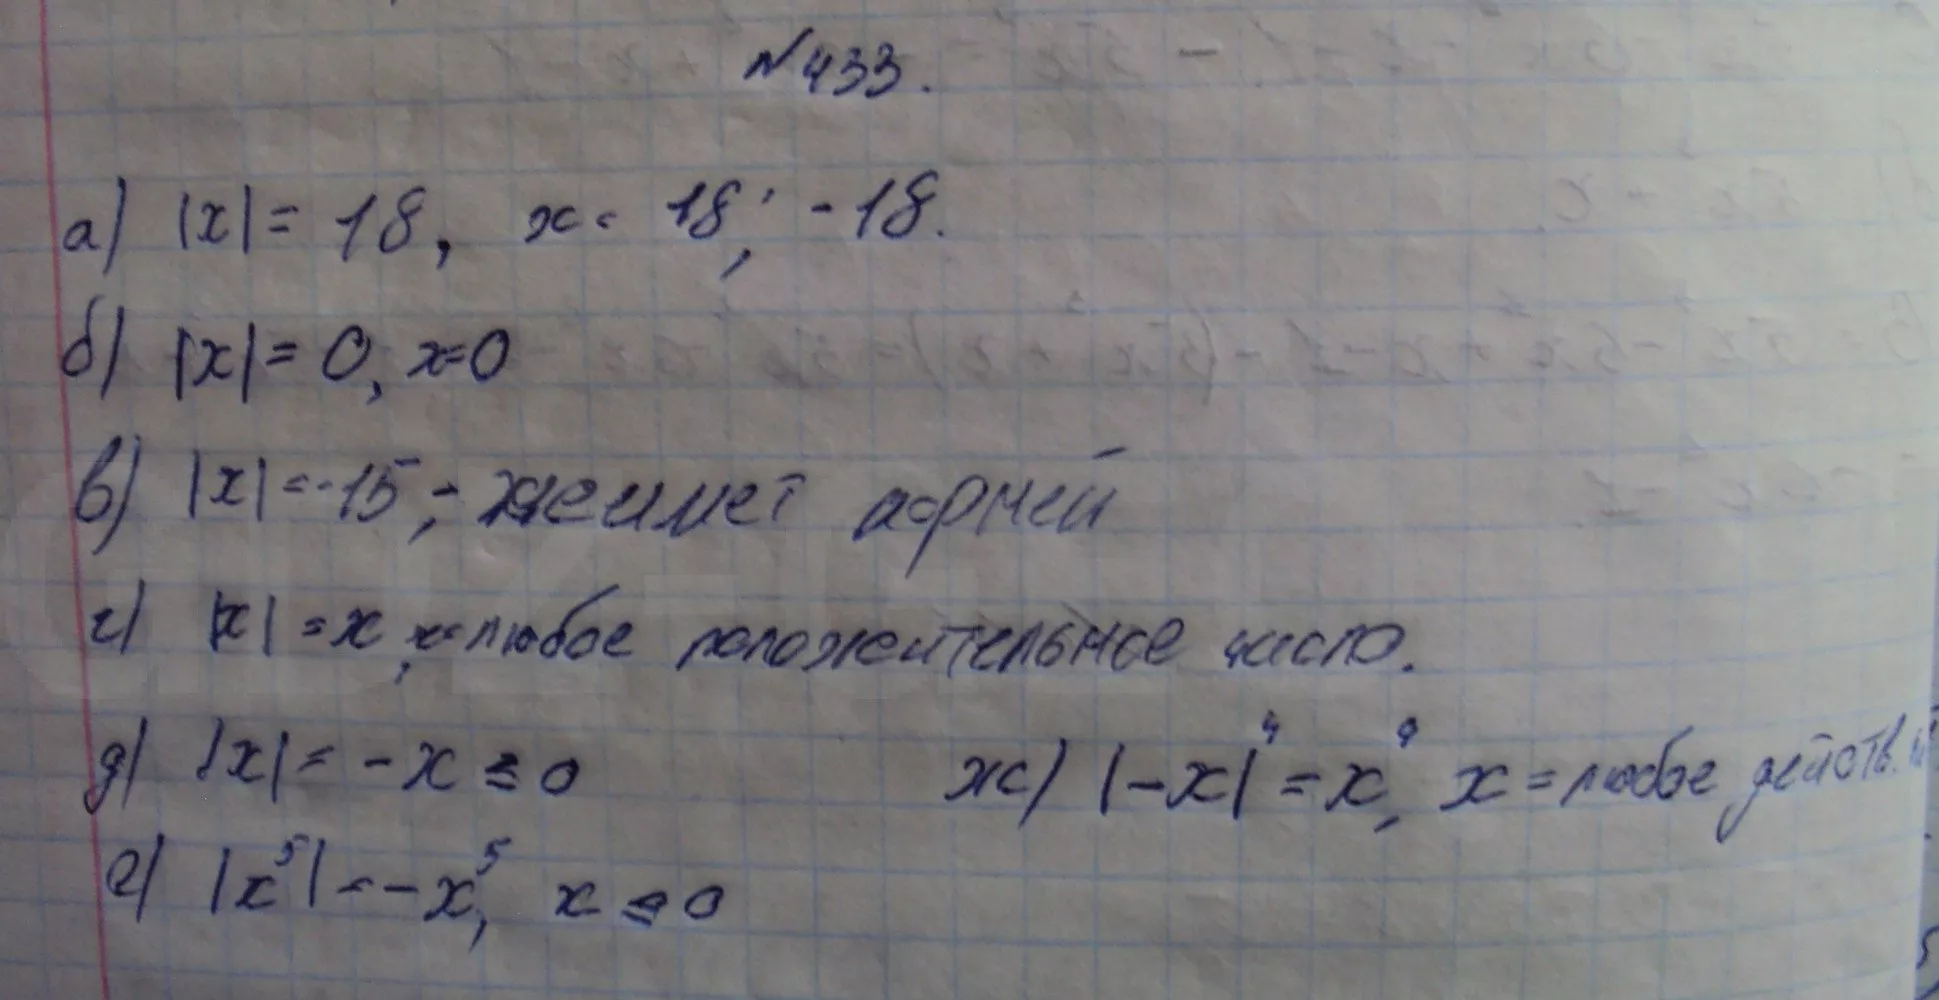 №433.
а) |x| = 18, x = 18; -18.
б) |x| = 0, x=0
в) |x| = -15, - не имеет корней
г) |x| = x, x=любое положительное число.
д) |x| = -x ≤ 0
ж) |-x|⁴ = x⁴, x = любое действ.
е) |x⁵| = -x⁵, x ≤ 0